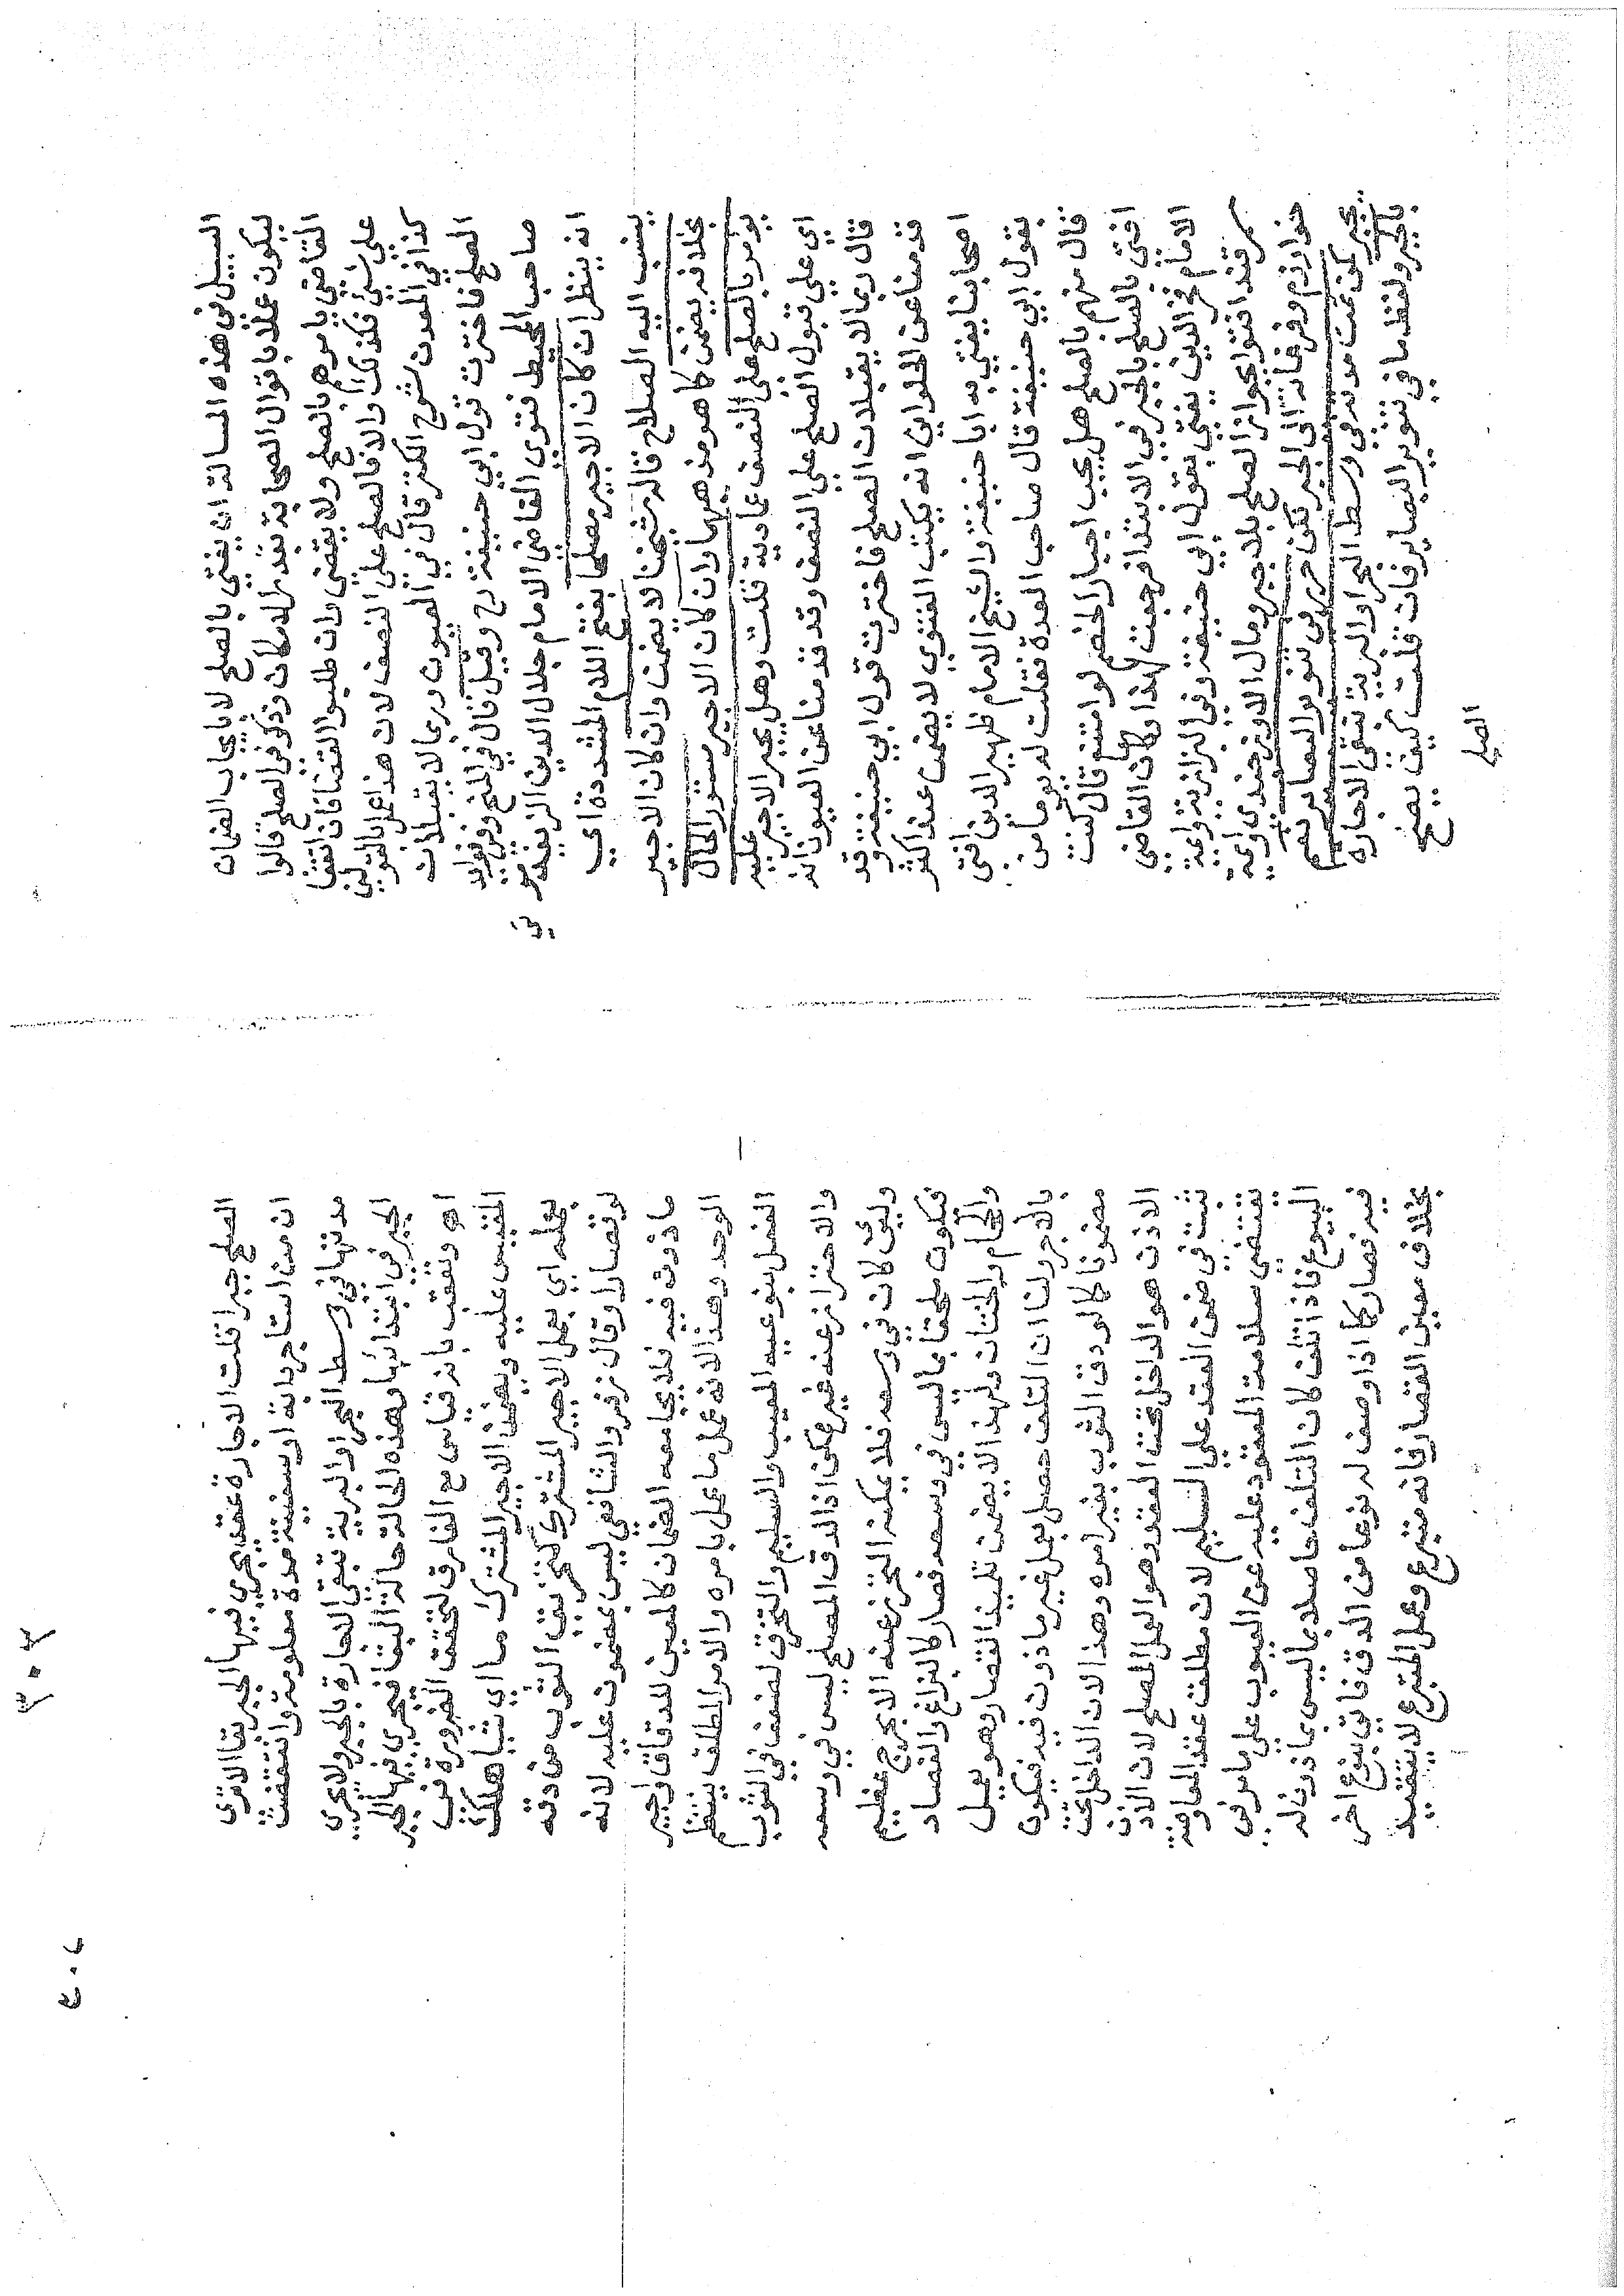 السبيل في هذه المسالة ان يفتي بالصلح لايجاب الضمان
ليكون عملا باقوال الصحابة بقدر الامكان وذكر في الصلح قالوا
القاضي يامرهم بالصلح ولا يقضي وان طلبوا القضا فان اتفقا
علي شي فكذلك والا فالصلح علي النصف لان هذا عمل بالقولين
كذا في المعدن شرح الكنز قال في العيون وربما لا يقبلان
الصلح فاخترت قول ابي حنيفة رح وقيل قال في المنح وفي فوايد
صاحب المحيط فتوي القاضي الامام جلال الدين الزيغدموني
انه ينظر ان كان الاجير مصلحا بفتح اللام المشددة اي
ينسب اليه الصلاح قاله شيخنا لا يضمن وان كان الاجير
بخلافه يضمن كما هو مذهبهما وان كان الاجير مستور الحال
يومر بالصلح علي النصف عمادية قلت وهل يجبر الاجير عليه
اي علي قبول الصلح علي النصف وقد قدمنا عن العيون انه
قال ربما لا يقبلان الصلح فاخترت قول ابي حنيفة وقد
قدمنا عن الحلواني انه يكتب الفتوي لا يضمن عند اكثر
اصحابنا يفتي به ابا حنيفة والشيخ الامام ظهير الدين افتي
بقول ابي حنيفة قال صاحب العدة فقلت له يوما من
قال منهم بالصلح هل يجب اجبار الخصم لو امتنع قال كنت
افتي بالصلح بالجبر في الابتدا فرجعت لهذا وكان القاضي
الامام فخر الدين يفتي بقول ابي حنيفة وفي البزازية وايمة
سمرقند افتوا بجواز الصلح بلا جبر ومال الاوزجندي وايمة
خوارزم وفرغانة الي الجبر لكن حرر في تنوير البصاير نعم
يجبر كمن تمت مدته في وسط البحر او البرية تبقي الاجارة
بالجبر ولفظ ما في تنوير البصاير فان قلت كيف يصح
الصلح
الصلح جبرا قلت الاجارة عقد يجري فيها الجبر بقا الا تري
ان من استاجر دابة او سفينة مدة معلومة وانقضت
مدتها في وسط البحر او البرية تبقي الاجارة بالجبر ولا يجري
الجبر في ابتدائها وهذه الحالة حالة البقا فيجري فيها الجبر
اهـ وتعقب بانه قياس مع الفارق لتحقق الضرورة في
المقيس عليه ويضمن الاجير المشترك ما اي شيا هلك
بعمله اي بعمل الاجير المشترك كتخريق الثوب من دقه
لو قصارا وقال زفر والشافعي ليس بمضمون عليه لانه
ماذون فيه فلا يجامعه الضمان كالمعين للدقاق واجير
الوحد وهذا لانه عمل ما عمل بامره والامر المطلق ينتظم
الفعل بنوعيه المعيب والسليم والتخرق لضعف في الثوب
والاحتراز عنه غير ممكن اذ الدق المصلح ليس في وسعه
ولين كان في وسعه فلا يمكنه التحرز عنه الا بحرج عظيم
فيكون ملحقا بما ليس في وسعه فصار كالبزاغ والفصاد
والحجام والختان ولهذا لا يضمن تلميذ القصار وهو يعمل
بالاجر ولنا ان التلف حصل بعمل غير ماذون فيه فيكون
مضمونا كما لو دق الثوب بغير امره وهذا لان الداخل تحت
الاذن هو الداخل تحت العقد وهو العمل المصلح لان الاذن
ثبت في ضمن العقد علي التسليم لان مطلق عقد المعاوضة
يقتضي سلامة المعقود عليه عن العيوب علي ما مر في
البيوع فاذا اتلف كان التلف حاصلا بما ليس بماذون له
فيه فصار كما اذا وصف له نوعا من الدق فاتي بنوع اخر
بخلاف معين القصار فانه متبرع وعمل المتبرع لا يتقيد
٣٠٣
٤٠٢